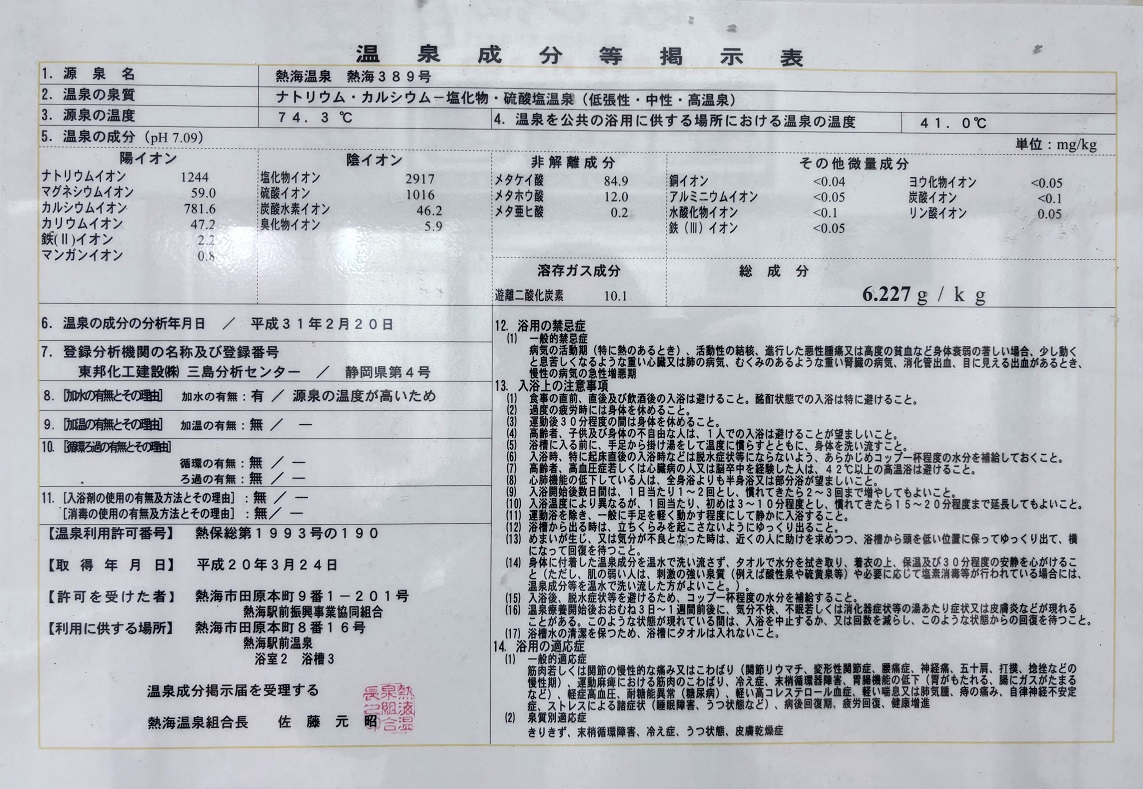 温泉成分等掲示表
1. 源泉名 熱海温泉 熱海389号
2. 温泉の泉質 ナトリウム・カルシウム－塩化物・硫酸塩温泉（低張性・中性・高温泉）
3. 源泉の温度 74.3℃ 4. 温泉を公共の浴用に供する場所における温泉の温度 41.0℃
5. 温泉の成分 (pH 7.09) 単位：mg/kg
陽イオン
ナトリウムイオン 1244
マグネシウムイオン 59.0
カルシウムイオン 781.6
カリウムイオン 47.2
鉄(Ⅱ)イオン 2.2
マンガンイオン 0.8
陰イオン
塩化物イオン 2917
硫酸イオン 1016
炭酸水素イオン 46.2
臭化物イオン 5.9
非解離成分
メタケイ酸 84.9
メタホウ酸 12.0
メタ亜ヒ酸 0.2
その他微量成分
銅イオン <0.04 ヨウ化物イオン <0.05
アルミニウムイオン <0.05 炭酸イオン <0.1
水酸化物イオン <0.1 リン酸イオン 0.05
鉄(Ⅲ)イオン <0.05
溶存ガス成分
遊離二酸化炭素 10.1
総成分
6.227 g / k g
6. 温泉の成分の分析年月日 ／ 平成31年2月20日
7. 登録分析機関の名称及び登録番号
東邦化工建設㈱ 三島分析センター ／ 静岡県第4号
8. [加水の有無とその理由] 加水の有無：有 ／ 源泉の温度が高いため
9. [加温の有無とその理由] 加温の有無：無 ／ ―
10. [循環ろ過の有無とその理由]
循環の有無：無 ／ ―
ろ過の有無：無 ／ ―
11. [入浴剤の使用の有無及方法とその理由]：無 ／ ―
[消毒の使用の有無及方法とその理由]：無 ／ ―
【温泉利用許可番号】 熱保総第1993号の190
【取得年月日】 平成20年3月24日
【許可を受けた者】 熱海市田原本町9番1－201号
熱海駅前振興事業協同組合
【利用に供する場所】 熱海市田原本町8番16号
熱海駅前温泉
浴室2 浴槽3
温泉成分掲示届を受理する
熱海温泉組合長 佐藤元昭
12. 浴用の禁忌症
(1) 一般的禁忌症
病気の活動期（特に熱のあるとき）、活動性の結核、進行した悪性腫瘍又は高度の貧血など身体衰弱の著しい場合、少し動く
と息苦しくなるような重い心臓又は肺の病気、むくみのあるような重い腎臓の病気、消化管出血、目に見える出血があるとき、
慢性の病気の急性増悪期
13. 入浴上の注意事項
(1) 食事の直前、直後及び飲酒後の入浴は避けること。酩酊状態での入浴は特に避けること。
(2) 過度の疲労時には身体を休めること。
(3) 運動後30分程度の間は身体を休めること。
(4) 高齢者、子供及び身体の不自由な人は、1人での入浴は避けることが望ましいこと。
(5) 浴槽に入る前に、手足から掛け湯をして温度に慣らすとともに、身体を洗い流すこと。
(6) 入浴時、特に起床直後の入浴時などは脱水症状等にならないよう、あらかじめコップ一杯程度の水分を補給しておくこと。
(7) 高齢者、高血圧症若しくは心臓病の人又は脳卒中を経験した人は、42℃以上の高温浴は避けること。
(8) 心肺機能の低下している人は、全身浴よりも半身浴又は部分浴が望ましいこと。
(9) 入浴開始後数日間は、1日当たり1～2回とし、慣れてきたら2～3回まで増やしてもよいこと。
(10) 入浴温度により異なるが、1回当たり、初めは3～10分程度とし、慣れてきたら15～20分程度まで延長してもよいこと。
(11) 運動浴を除き、一般に手足を軽く動かす程度にして静かに入浴すること。
(12) 浴槽から出る時は、立ちくらみを起こさないようにゆっくり出ること。
(13) めまいが生じ、又は気分が不良となった時は、近くの人に助けを求めつつ、浴槽から頭を低い位置に保ってゆっくり出て、横
になって回復を待つこと。
(14) 身体に付着した温泉成分を温水で洗い流さず、タオルで水分を拭き取り、着衣の上、保温及び30分程度の安静を心がけるこ
と（ただし、肌の弱い人は、刺激の強い泉質（例えば酸性泉や硫黄泉等）や必要に応じて塩素消毒等が行われている場合には、
温泉成分等を温水で洗い流した方がよいこと。）。
(15) 入浴後、脱水症状等を避けるため、コップ一杯程度の水分を補給すること。
(16) 温泉療養開始後おおむね3日～1週間前後に、気分不快、不眠若しくは消化器症状等の湯あたり症状又は皮膚炎などが現れる
ことがある。このような状態が現れている間は、入浴を中止するか、又は回数を減らし、このような状態からの回復を待つこと。
(17) 浴槽水の清潔を保つため、浴槽にタオルは入れないこと。
14. 浴用の適応症
(1) 一般的適応症
筋肉若しくは関節の慢性的な痛み又はこわばり（関節リウマチ、変形性関節症、腰痛症、神経痛、五十肩、打撲、捻挫などの
慢性期）、運動麻痺における筋肉のこわばり、冷え症、末梢循環障害、胃腸機能の低下（胃がもたれる、腸にガスがたまる
など）、軽症高血圧、耐糖能異常（糖尿病）、軽い高コレステロール血症、軽い喘息又は肺気腫、痔の痛み、自律神経不安定
症、ストレスによる諸症状（睡眠障害、うつ状態など）、病後回復期、疲労回復、健康増進
(2) 泉質別適応症
きりきず、末梢循環障害、冷え症、うつ状態、皮膚乾燥症